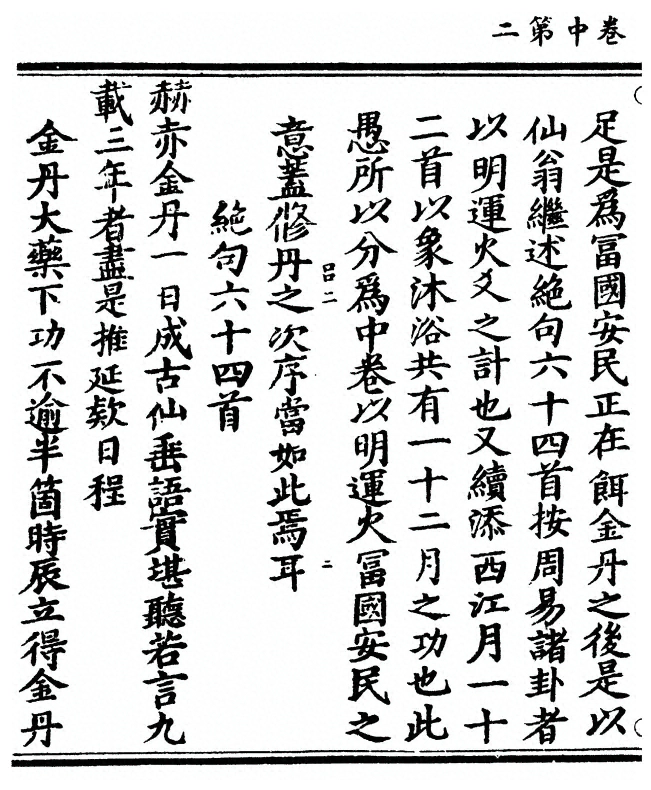 卷中第二
足是爲冨國安民正在餌金丹之後是以
仙翁繼述絶句六十四首按周易諸卦者
以明運火爻之計也又續添西江月一十
二首以象沐浴共有一十二月之功也此
愚所以分爲中卷以明運火冨國安民之
吕二 二
意葢修丹之次序當如此焉耳
絶句六十四首
赫赤金丹一日成古仙垂語實堪聽若言九
載三年者盡是推延欵日程
金丹大藥下功不逾半箇時辰立得金丹